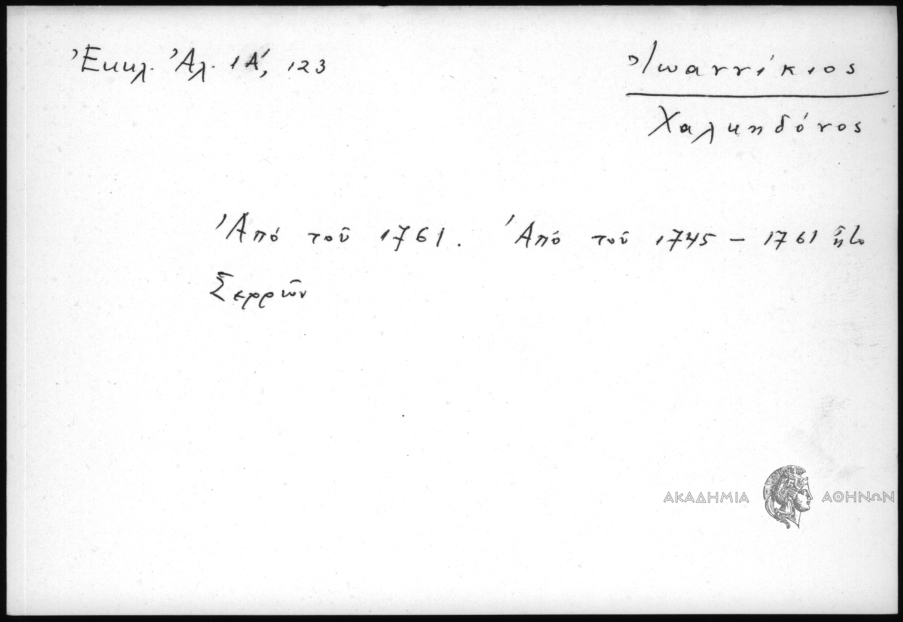 Ἐκκλ. Ἀλ. ΙΑ', 123
Ἰωαννίκιος
Χαλκηδόνος
Ἀπό τοῦ 1761. Ἀπό τοῦ 1745 – 1761 ἦτο
Σερρῶν
ΑΚΑΔΗΜΙΑ ΑΘΗΝΩΝ